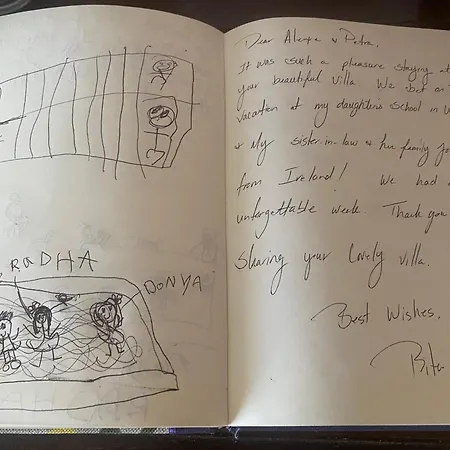 RADHA
DONYA
Dear Alexa & Petra,
It was such a pleasure staying at
your beautiful villa. We bet a
vacation at my daughter's school in
& My sister-in-law & her family
from Ireland! We had
unforgettable week. Thank you
Sharing your lovely villa.
Best Wishes,
Ritu